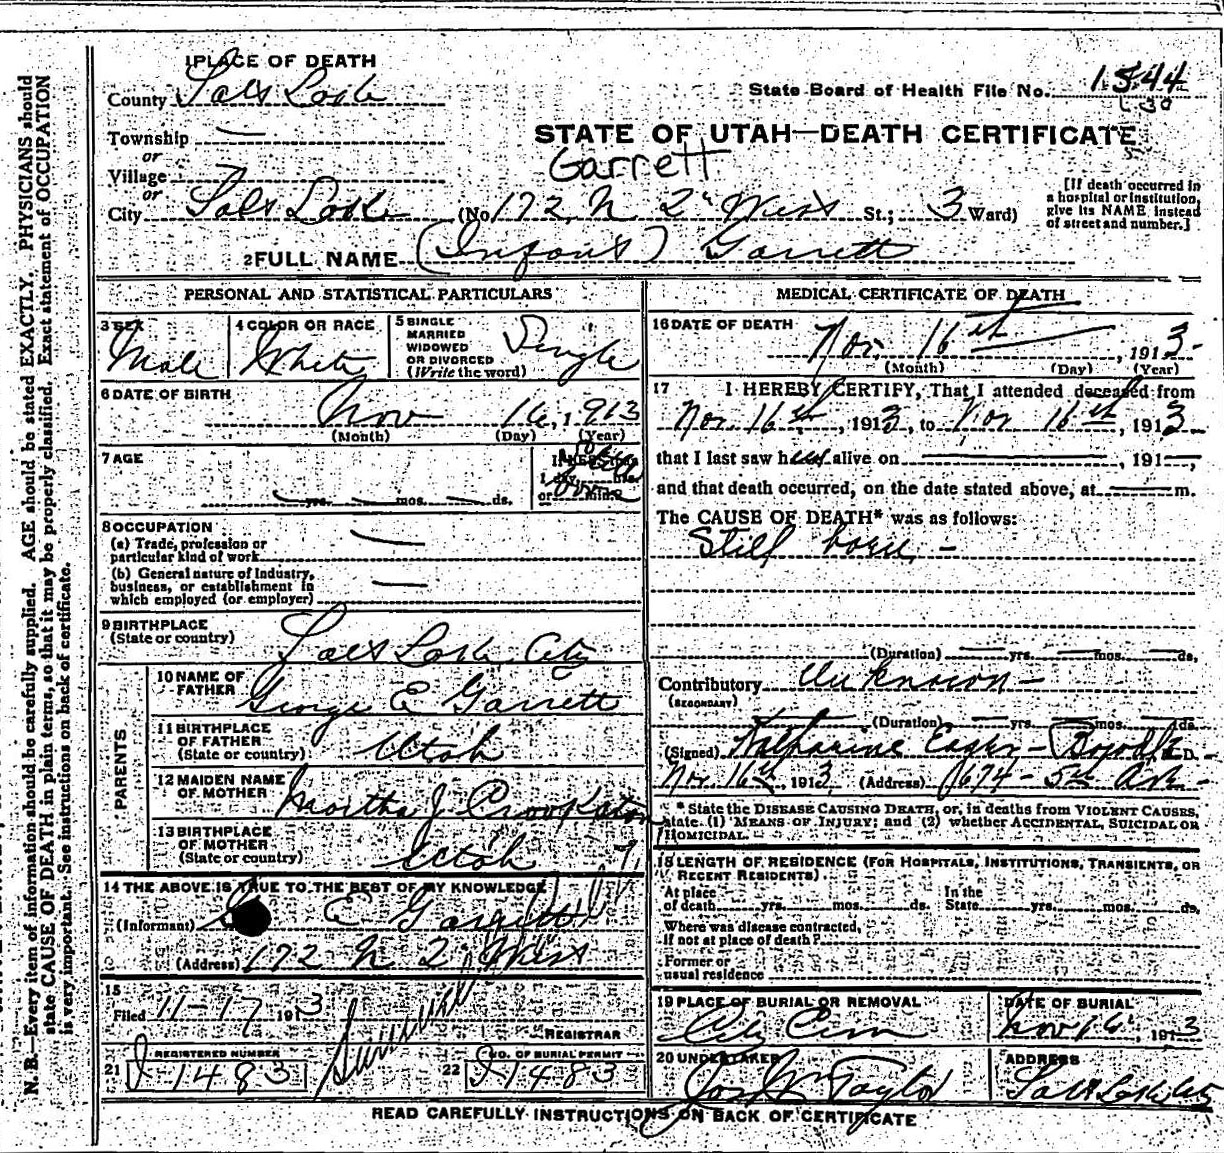 1 PLACE OF DEATH
County Salt Lake
State Board of Health File No. 1544
L 30
Township —
or
Village
or
STATE OF UTAH—DEATH CERTIFICATE
Garrett
City Salt Lake (No 172 N 2" West St.; 3 Ward)
[If death occurred in
a hospital or institution,
give its NAME instead
of street and number.]
2 FULL NAME (Infant) Garrett
PERSONAL AND STATISTICAL PARTICULARS
3 SEX
Male
4 COLOR OR RACE
White
5 SINGLE
MARRIED
WIDOWED
OR DIVORCED
(Write the word)
Single
6 DATE OF BIRTH
Nov 16, 1913
(Month) (Day) (Year)
7 AGE
— yrs. — mos. — ds.
8 OCCUPATION
(a) Trade, profession or
particular kind of work —
(b) General nature of Industry,
business, or establishment in
which employed (or employer) —
9 BIRTHPLACE
(State or country) Salt Lake City
PARENTS
10 NAME OF
FATHER George E Garrett
11 BIRTHPLACE
OF FATHER
(State or country) Utah
12 MAIDEN NAME
OF MOTHER Martha J Crookston
13 BIRTHPLACE
OF MOTHER
(State or country) Utah
14 THE ABOVE IS TRUE TO THE BEST OF MY KNOWLEDGE
(Informant) E Garrett
(Address) 172 N 2" West
15
Filed 11-17 1913
REGISTRAR
21 REGISTERED NUMBER
J 1483
22 NO. OF BURIAL PERMIT
J 1483
MEDICAL CERTIFICATE OF DEATH
16 DATE OF DEATH
Nov. 16th, 1913
(Month) (Day) (Year)
17 I HEREBY CERTIFY, That I attended deceased from
Nov. 16th, 1913, to Nov 16th, 1913
that I last saw h alive on —, 191—,
and that death occurred, on the date stated above, at — m.
The CAUSE OF DEATH* was as follows:
Still born —
(Duration) — yrs. — mos. — ds.
Contributory Unknown —
(SECONDARY)
(Duration) — yrs. — mos. — ds.
(Signed) Katharine Eager
Nov. 16th, 1913, (Address) 674 - 5th Ave -
* State the DISEASE CAUSING DEATH, or, in deaths from VIOLENT CAUSES,
state (1) MEANS OF INJURY; and (2) whether ACCIDENTAL, SUICIDAL OR
HOMICIDAL.
18 LENGTH OF RESIDENCE (FOR HOSPITALS, INSTITUTIONS, TRANSIENTS, OR
RECENT RESIDENTS)
At place
of death yrs. mos. ds.
In the
State yrs. mos. ds.
Where was disease contracted,
if not at place of death?
Former or
usual residence
19 PLACE OF BURIAL OR REMOVAL
City Cem
DATE OF BURIAL
Nov 16, 1913
20 UNDERTAKER
Jos Wm Taylor
ADDRESS
Salt Lake City
READ CAREFULLY INSTRUCTIONS ON BACK OF CERTIFICATE
N. B.—Every item of information should be carefully supplied. AGE should be stated EXACTLY. PHYSICIANS should
state CAUSE OF DEATH in plain terms, so that it may be properly classified. Exact statement of OCCUPATION
is very important. See instructions on back of certificate.